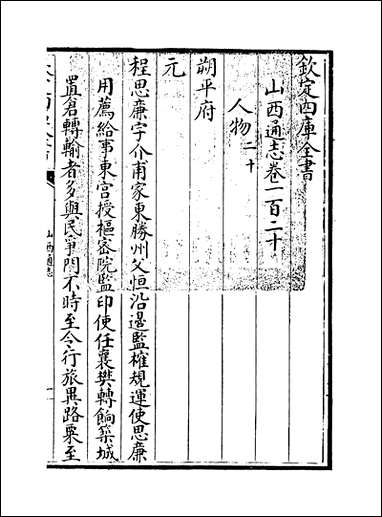 欽定四庫全書
山西通志卷一百二十
人物二十
朔平府
元
程思廉字介甫家東勝州父恒沿邊監榷規運使思廉
用薦給事東宮授樞密院監印使任襄樊轉餉築城
置倉轉輸者多與民爭門不時至令行旅異路粟至
山西通志